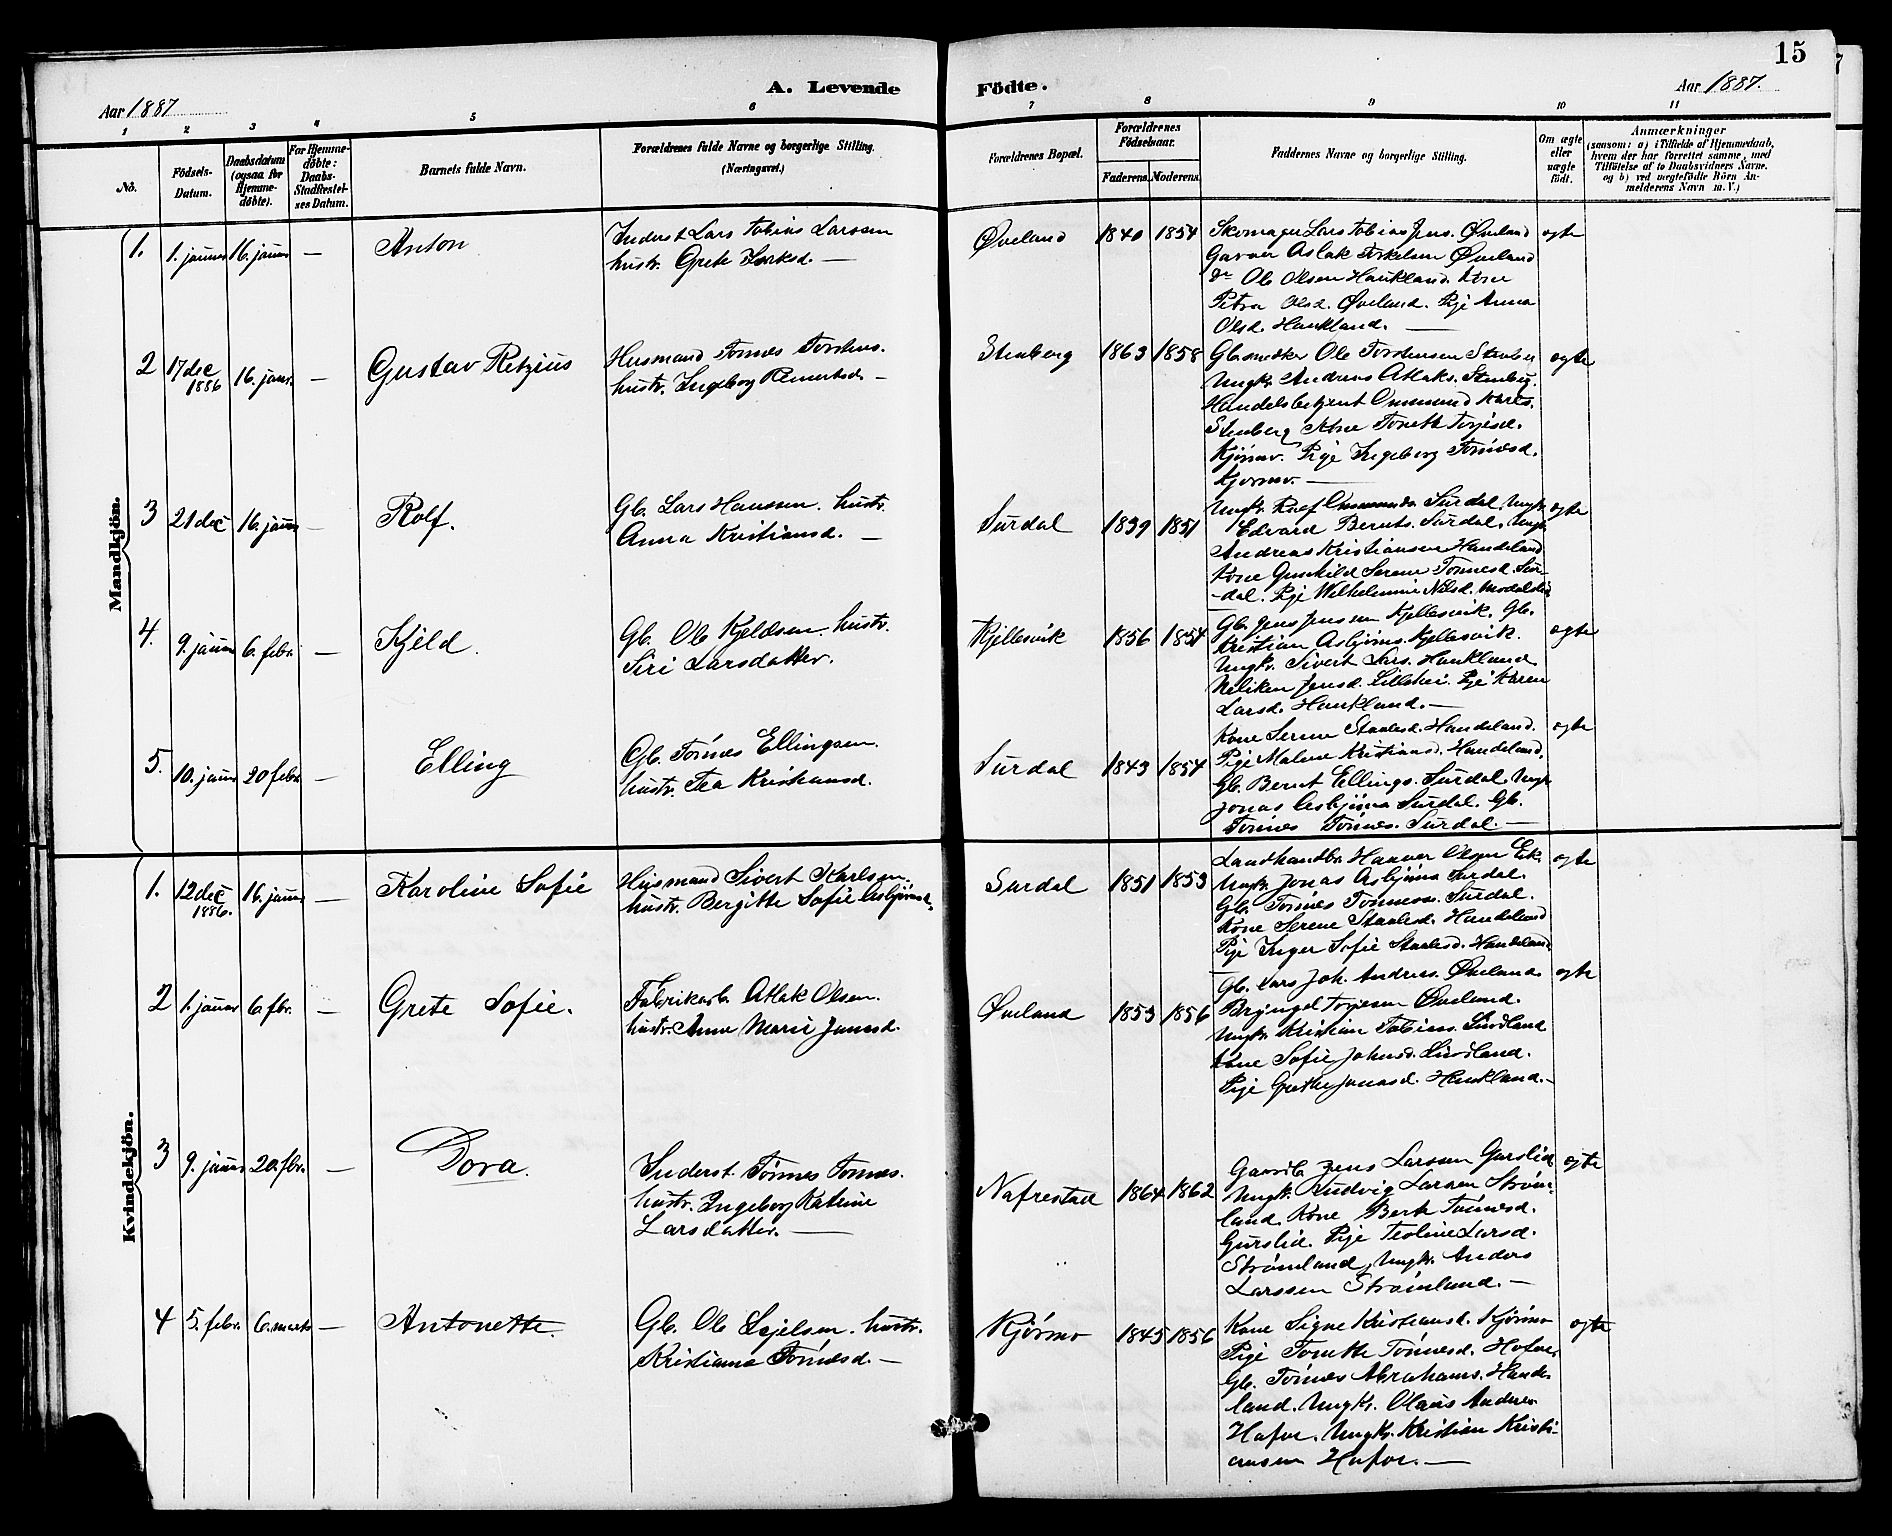 15
A. Levende Födte.
Aar 1887
Aar 1887.
1 2 3 4 5 6 7 8 9 10 11
No.
Födsels-Datum.
Daabsdatum (ogsaa for Hjemmedöbte).
For Hjemmedöbte: Daabs-Stadfæstelses Datum.
Barnets fulde Navn.
Forældrenes fulde Navne og borgerlige Stilling.
(Næringsvei.)
Forældrenes Bopæl.
Forældrenes Födselsaar.
Faderens. Moderens.
Faddernes Navne og borgerlige Stilling.
Om ægte eller uægte födt.
Anmærkninger
(saasom: a) i Tilfælde af Hjemmedaab,
hvem der har forrettet samme, med
Tilföielse af to Daabsvidners Navne.
og b) ved uægtefödte Börn An-
melderens Navn m. V.)
Mandkjön.
1. 1. januar 16. januar — Anton
Inderst Lars Tobias Larssen
hustr. Grete —
Øveland 1840 1854
Skomager Lars Tobias Jens. Øveland
Garver Aslak Torkelsen Øveland
do Ole Olsen Haukland. Kone
Petra Olsd. Øveland. Pige Anna
Olsd. Haukland. —
ægte
2 17 dec 1886 16. janr. — Gustav Retzius
Husmand Tønnes Torstens.
hustr. Ingeborg Reinertsd. —
Stenberg 1863 1858
Gbr. Ole Torstensen Stenberg
Ungk. Andreas Atlaks. Stenberg.
Handelsbetjent Ommund Karls.
Stenberg Kone Tonette Torjesd.
Kjørmo. Pige Ingeborg Tønnesd.
Kjørmo. —
ægte
3 21 dec 16. januar — Rolf.
Gb. Lars Hanssen. hustr.
Anna Kristiansd. —
Surdal 1839 1851
Ungk. Surdal, Ungk.
Edvard Bernts. Surdal, Ungk.
Andreas Kristiansen Handeland
Kone Gunhild Serene Tønnesd. Sur-
-dal. Pige Wilhelmine Nilsd.
ægte
4. 9. januar 6. febr. — Kjeld.
Gb. Ole Kjeldsen. hustr.
Siri Larsdatter.
Kjellesvik 1856 1854
Gb. Jens Jensen Kjellesvik. Gb.
Kristian Asbjørns. Kjellesvik.
Ungk. Sivert Lars. Haukland
Jensd. Pige Karen
Larsd. Haukland. —
ægte
5. 10. januar 20 febr. — Elling
Gb. Tønnes Ellingsen.
hustr. Tea Kristiansd.
Surdal 1843 1854
Kone Serene Staalesd. Handeland.
Pige Malene Kristiansd. Handeland,
Gb. Bernt Ellings. Surdal, Ungk.
Jonas Asbjørns Surdal. Gb.
Tønnes Tønnes. Surdal. —
ægte
Kvindekjön.
1. 12 dec 1886. 16. januar — Karoline Sofie
Husmand Sivert Karlsen.
hustr. Bergitte Sofie Asbjørnsd.
Surdal 1851 1853
Landhandler Olsen Eik.
Ungk. Jonas Asbjørns Surdal.
Gb. Tønnes Tønnesen. Surdal.
Kone Serene Staalesd. Handeland
Pige Inger Sofie Staalesd. Handeland
ægte
2 1. januar 6. fbr. — Grete Sofie.
Fabrikarb. Atlak Olsen.
hustr. Anne Marie Jonasd.
Øveland 1853 1856
Gb. Lars Joh. Andreas. Øveland
Bryngel Torjesen Øveland.
Ungk. Kristian Tobias. Lindland
Kone Sofie Johnsd. Lindland.
Pige Grethe Jonasd. Haukland. —
ægte
3 9. januar 20. fbr. — Dora.
Inderst. Tønnes Tønnes.
hustr. Ingeborg Katrine
Larsdatter. —
Nafrestad 1864 1862
Gaardb. Jens Larssen Gurslid
Ungk. Ludvig Larsen Strøm-
land. Kone Berte Tønnesd.
Gurslid. Pige Teoline Larsd.
Strømland, Ungk. Anders
Larssen Strømland. —
ægte
4 5. febr. 6. marts — Antonette.
Gb. Ole hustr.
Kristiane Tønnesd. —
Kjørmo 1845 1856
Kone Signe Kristiansd. Kjørmo
Pige Tonette Tønnesd. Hafor,
Gb. Tønnes Abrahams. Hande-
land. Ungk. Olaus Anders.
Hafor. Ungk. Kristian Kristi-
ansen Hafor. —
ægte